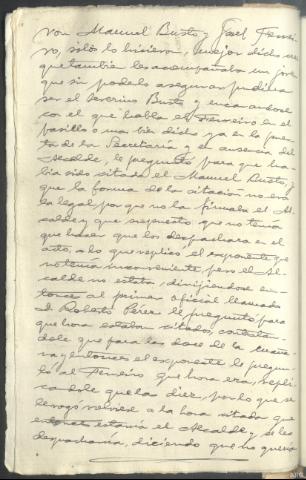 ron Manuel Busto y José Ferrei
ro, solo lo hicieron, mejor dicho
que tambien les acompañaba un jo
que sin poderlo asegurar pudiera
ser el Severino Busto y encarandose
con el que habla el Ferreiro en el
pasillo o mas bien dicho ya en la puer
ta de la Secretaria y en ausencia del
Alcalde, le pregunto para que ha
bia sido citado el Manuel Busto, y
que la forma de la citacion no era
la legal, por que no la firmaba el Al
calde y que supuesto que no tenia
que hacer que los despachara en el
acto, a lo que replico el exponente que
no tenia inconveniente pero el Al
calde no estaba, dirijiendose en
tonces al primer oficial llamado
D. Roberto Perez le pregunto para
que hora estaban citados, contestan
dole que para las doce de la
ña y entonces el exponente le pregun
to al Ferreiro que hora era, repli
candole que las diez, por lo que se
le rogó volviese a la hora citada que
entonces estaria el Alcalde, y se les
despacharia, diciendo que no queria